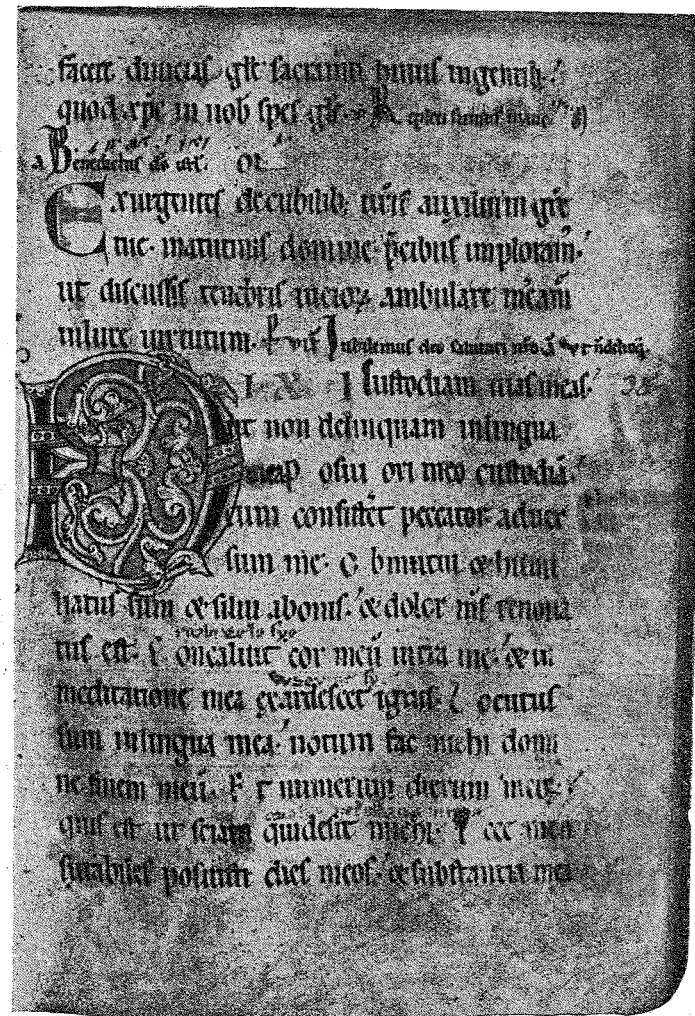 facere divicias głe sacramti huius in gentib;
quod xp̄c in nob spes głe. R epleti sumus mane
Benedictus do isrł. OR
Exurgentes de cubilib; nr̄is auxilium grē
tue. matutinis domine p̄cibus imploram.
ut discussis tenebris vicioꝝ ambulare mēam
in luce uirtutum. Jubilemus deo salutari nr̄o
DIXI Custodiam uias meas. 38
ut non delinquam inlingua
mea P osui ori meo custodiā.
cum consisteret peccator aduer
sum me. O bmutui & humi
liatus sum & silui abonis. & dolor m̄s renoua
tus est. C oncaluit cor meū intra me. & in
meditatione mea exardescet ignis. L ocutus
sum inlingua mea. notum fac michi domi
ne finem meū. E t numerum dierum meoꝝ
quis est ut sciam quid desit michi. E cce men
surabiles posuisti dies meos. & substantia mea